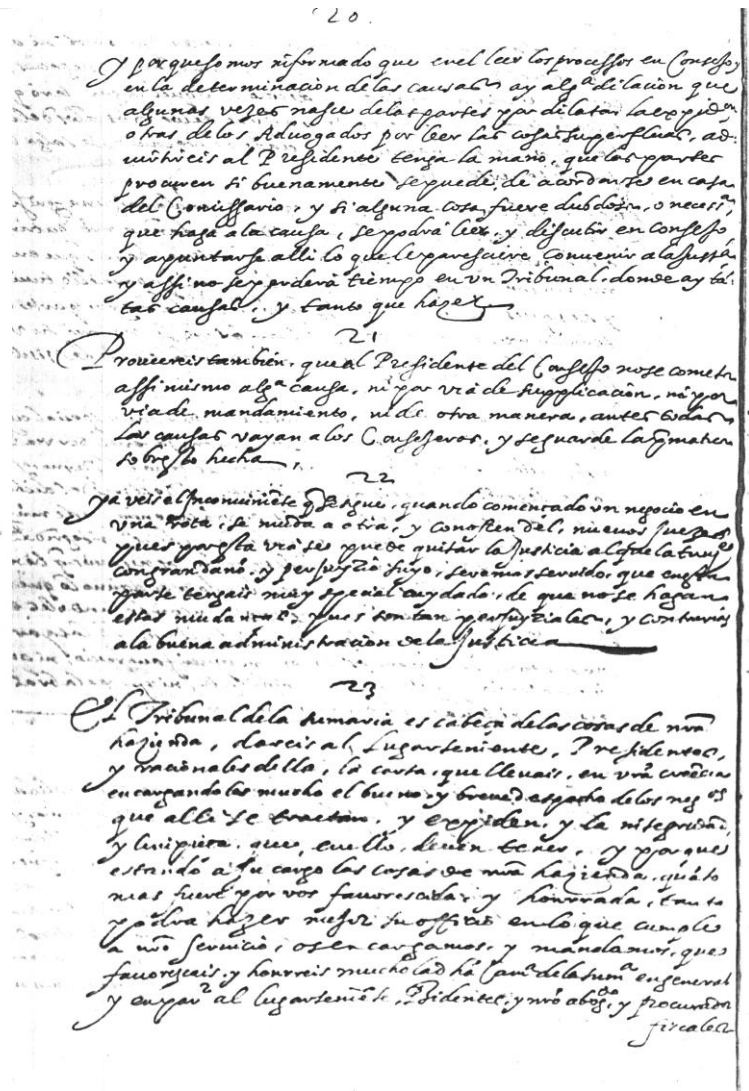 20.
y porque somos informado que en el leer los processos en Consejo y
en la determinacion de las causas ay algª dilacion que
algunas vezes nasce de las partes por dilatar la expidon
otras de los Advogados por leer las cosas superfluas, ad-
vertireis al Presidente tenga la mano, que las partes
procuren si buenamente se puede, de acordarse en casa
del Comissario, y si alguna cosa fuere dubdosa, o necessª
que haga a la causa, se podrá leer, y discutir en Consejo
y apuntarse alli lo que le paresciere convenir a la Justª
y assi no se perderá tiempo en vn Tribunal, donde ay tā-
tas causas, y tanto que hazer
21
Proueereis tambien, que al Presidente del Consejo no se cometa
assi mismo algª causa, ni por via de supplicacion, ni por
via de mandamiento, ni de otra manera, antes todas
las causas vayan a los Consejeros, y se guarde la pmatica
sobresto hecha,
22
ya veis el Inconuiniēte q̃ se sigue, quando comencado vn negocio en
vna rota, se muda a otra, y conoscen del, nuevos Juezes
pues por esta via se puede quitar la Justicia al q̃ la tuuiere
con gran daño, y perjuyzio suyo, seremos servido, que en esta
parte tengais muy special cuydado, de que no se hagan
estas mudancas, pues son tan perjuyziales, y contrarias
a la buena administracion de la Justicia
23
El Tribunal de la sumaria es cabeça de las cosas de nrā
hazienda, dareis al Lugarteniente, Presidentes,
y racionales della, la carta, que lleuais, en vrā creencia
encargandoles mucho el bueno y breue despacho de los negos
que alli se tractan, y expiden, y la integridad,
y limpieza, que, en ello, deuen tener, y porque
estando a su cargo las cosas de nrā hazienda, quāto
mas fuere por vos fauorescida, y honrrada, tanto
podra hazer mejor su officio en lo que cumple
a nrō servicio, os encargamos, y mandamos, que
favorezcais, y honrreis mucho la dhā Camª de la Sumª en general
y en parʳ al lugarteniēte, Psidentes, y nrō abogdo, y procurador
fiscales